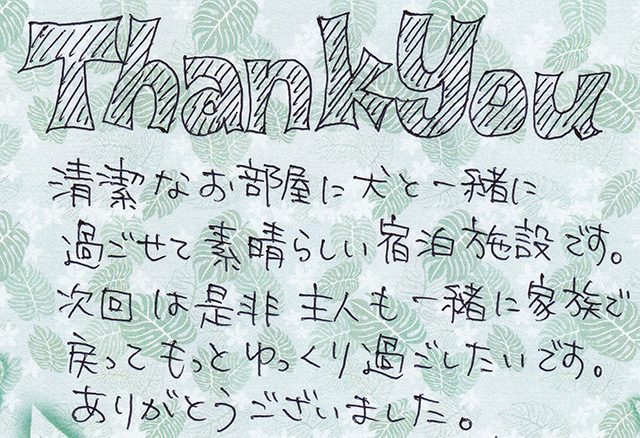 Thank You
清潔なお部屋に犬と一緒に
過ごせて素晴らしい宿泊施設です。
次回は是非主人も一緒に家族で
戻ってもっとゆっくり過ごしたいです。
ありがとうございました。